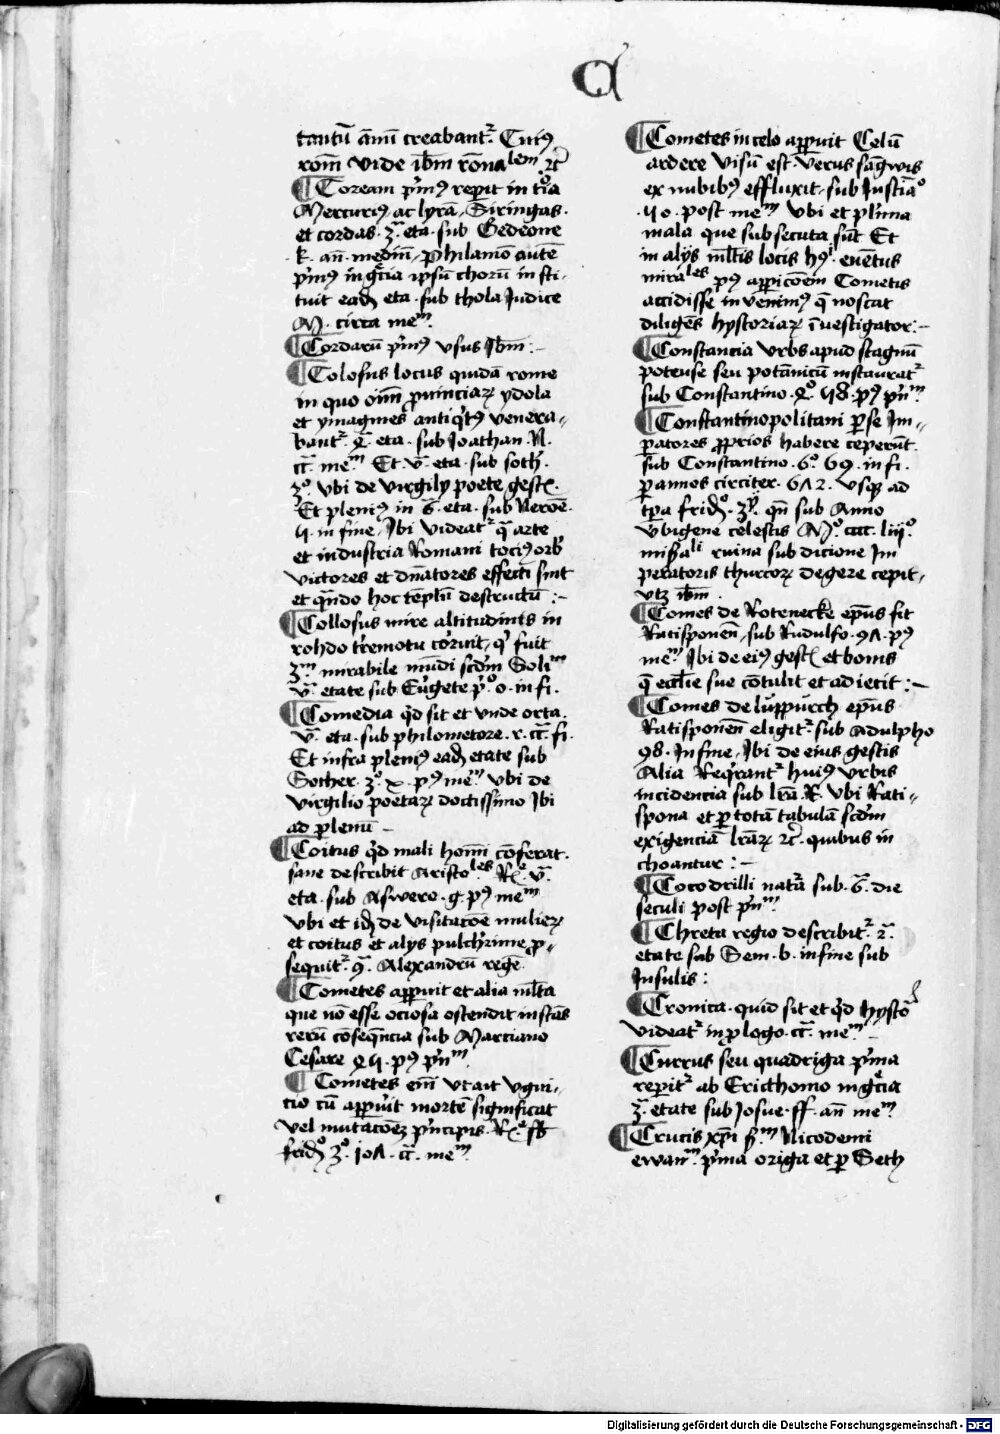 C
tantu᷃ a᷃ni᷃ creabant᷑. Cui9
rom᷃ vide ib᷃m ro᷃nalem ⁊c᷃
¶ Coream p᷑m9 reperit in
Mercuri9 ac lyra᷃, Siringas.
et cordas. 3.ᵃ eta. sub Gedeone
k. an᷃. medin᷃. Philamo᷃ aute᷃
p᷑m9 in g᷑cia ipsu᷃ choru᷃ insti-
tuit ead᷃ eta. sub thola Judice
M. circa meᵐ.
¶ Cordaru᷃ p᷑m9 vsus Ib᷃m:-
¶ Colosus locus quida᷃ rome
in quo oi᷃m prouinciaꝝ ydola
et ymagines antiq᷑t9 venera-
bant᷑. 4.ᵃ eta. sub Joathan. N.
cc᷃. meᵐ Et v.ᵃ eta. sub soth᷑.
3.º vbi de virgily poete gest᷑.
Et pleni9 in 6.ᵃ eta. sub Nero᷃e.
4. in fine, Ibi videat᷑ qᵃ arte
et industria Romani toci9 orb᷑
victores et dn᷃atores effecti sint
et qn᷃do hoc te᷃plu᷃ destructu᷃:-
¶ Collosus mire altitudinis in
rohdo t᷑remotu cor᷑uit, q᷑ fuit
3.ᵐ mirabile mu᷃di scd᷃m Soliᵐ
v.ᵃ etate sub Eu᷑gete p᷑º o. in fi.
¶ Comedia q᷑d sit et vnde orta.
v.ᵃ eta. sub philometore. r. cc᷃. fi.
Et infra pleni9 ead᷃ etate sub
Sother. 3.º x. p9 meᵐ vbi de
virgilio poetaꝝ doctissimo Ibi
ad plenu᷃ -
¶ Coitus q᷑d mali homi᷃ co᷃ferat.
sane describit Aristo᷑les Rx.ᵉ v.ᵃ
eta. sub Aswero. g. p9 meᵐ
vbi et id᷃ de visitaco᷃e mulieꝝ
et coitus et alys pulch᷑rime p-
sequit᷑. 9.ᵃ Alexandru᷃ rege᷃
¶ Cometes apparuit et alia ml᷃ta
que no᷃ esse ociosa ostendit insta᷃s
reru᷃ co᷃seque᷃ncia sub Marciano
Cesare 44. p9 p᷑nᵐ
¶ Cometes em᷃ vt ait vgui-
cio cu᷃ apparu᷑it morte᷃ significat
vel mutaco᷃em p᷑ncipis. Rx.ᵉ sb᷑
frid᷃º 3.º 107. cc᷃. meᵐ
¶ Cometes in celo apparuit Celu᷃
ardere visu᷃ est. verus sa᷃gwis
ex nubib9 effluxit, sub Justi᷃aº
40. post meᵐ vbi et plurima
mala que subsecuta su᷃t Et
in alys ml᷃tis locis h9ⁱ. eue᷃tus
miraᵇˡᵉˢ p9 apparicoe᷃m Cometis
accidisse inuenim9 q᷃ noscat
dilige᷃s hystoriaꝝ i᷃uestigator:-
¶ Constancia vrbs apud stagnu᷃
potense seu pota᷃nicu᷃ instaurat᷑
sub Constantino. 4.º 48. p9 p᷑nᵐ
¶ Constantinopolitani per se Im-
peratores proprios habere ceperu᷃t.
sub Constantino. 6.º 69. in fi.
per annos circiter. 672. vsque ad
tp᷃a frid᷃º. 3.ʸ. qn᷃ sub Anno
v᷑bigene celestis Mº. cccc. liij.º
mis᷑aˡⁱ ruina sub dicione Im
peratoris thurcoꝝ degere cepit,
vtz ib᷃m.
¶ Comes de Rotenecke ep᷃us fit
Ratisponen᷃, sub Rudulfo. 97. p9
meᵐ Ibi de ei9 gest᷑ et bonis
q᷃ eccl᷃ie sue co᷃tulit et adiecit:-
¶ Comes de luppurch ep᷃us
Ratisponen᷃ eligit᷑. sub Adulpho
98. In fine, Ibi de eius gestis
Alia Req᷑rant᷑ hui9 vrbis
incidencia sub lr᷃a. R. vbi Rati-
spona et per tota᷃ tabula᷃ scd᷃m
exigencia᷃ lr᷃aꝝ ⁊c᷃. quibus in
choantur:-
¶ Cocodrilli natu᷃r sub. 6.ᵃ die
seculi post p᷑nᵐ
¶ Chreta regio describit᷑. 2.ᵃ
etate sub Sem. b. in fine sub
Insulis:
¶ Cronica. quid sit et q᷑d hysto᷑
videat᷑ in prologo. cc᷃. meᵐ
¶ Currus seu quadriga p᷑ma
reperit᷑ ab Ericthonio in g᷑cia
3.ᵃ etate sub Josue. ff. an᷃ meᵐ
¶ Crucis xp᷃i s᷑ᵐ Nicodemi
ewan᷑ᵐ. p᷑ma origa et per Seth
Digitalisierung gefördert durch die Deutsche Forschungsgemeinschaft - DFG